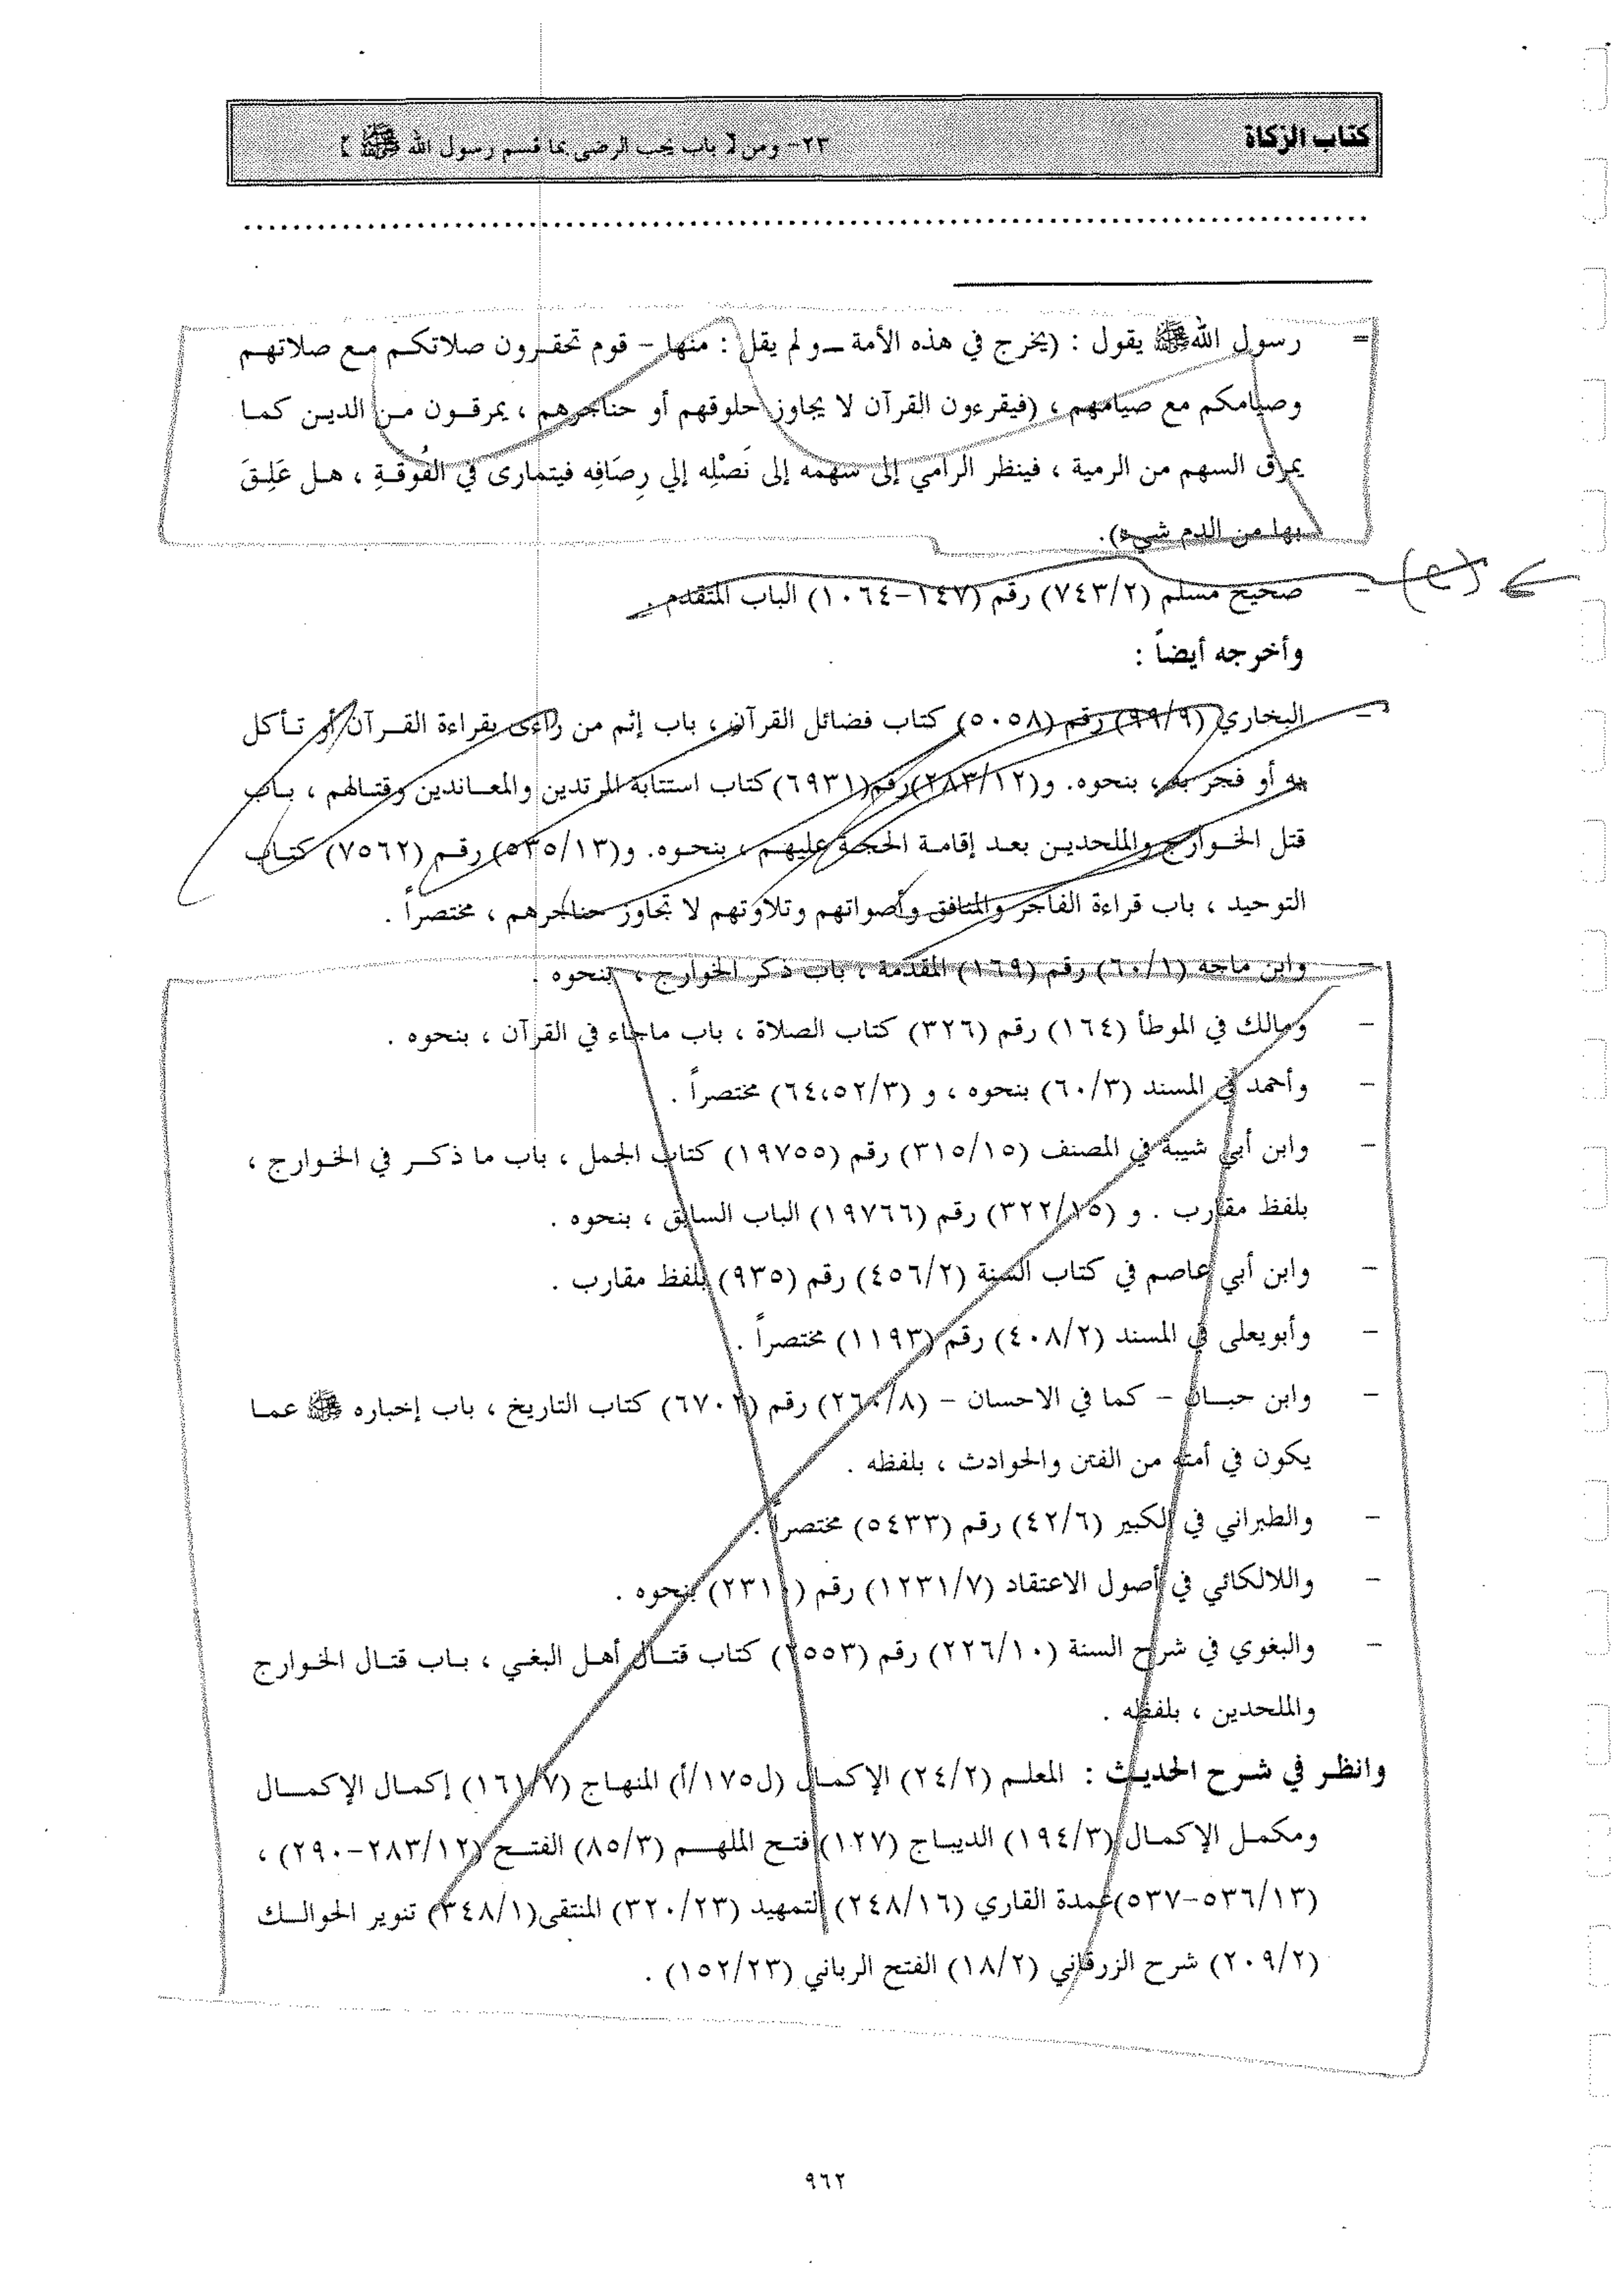 كتاب الزكاة
٢٣- ومن [ باب يجب الرضى بما قسم رسول الله ﷺ ]
= رسول الله ﷺ يقول : (يخرج في هذه الأمة ــ ولم يقل : منها - قوم تحقرون صلاتكم مع صلاتهم
وصيامكم مع صيامهم ، (فيقرءون القرآن لا يجاوز حلوقهم أو حناجرهم ، يمرقون من الدين كما
يمرق السهم من الرمية ، فينظر الرامي إلى سهمه إلى نَصْلِه إلي رِصَافِه فيتمارى في الفُوقةِ ، هل عَلِقَ
بها من الدم شيء).
- صحيح مسلم (٧٤٣/٢) رقم (١٤٧-١٠٦٤) الباب المتقدم .
وأخرجه أيضاً :
- البخاري (٩٩/٩) رقم (٥٠٥٨) كتاب فضائل القرآن ، باب إثم من راءى بقراءة القرآن أو تأكل
به أو فجر به ، بنحوه. و(٢٨٣/١٢)رقم(٦٩٣١)كتاب استتابة المرتدين والمعاندين وقتالهم ، باب
قتل الخوارج والملحدين بعد إقامة الحجة عليهم ، بنحوه. و(٥٣٥/١٣) رقم (٧٥٦٢) كتاب
التوحيد ، باب قراءة الفاجر والمنافق وأصواتهم وتلاوتهم لا تجاوز حناجرهم ، مختصراً .
- وابن ماجه (٦٠/١) رقم (١٦٩) المقدمة ، باب ذكر الخوارج ، بنحوه .
- ومالك في الموطأ (١٦٤) رقم (٣٢٦) كتاب الصلاة ، باب ماجاء في القرآن ، بنحوه .
- وأحمد في المسند (٦٠/٣) بنحوه ، و (٦٤،٥٢/٣) مختصراً .
- وابن أبي شيبة في المصنف (٣١٥/١٥) رقم (١٩٧٥٥) كتاب الجمل ، باب ما ذكر في الخوارج ،
بلفظ مقارب . و (٣٢٢/١٥) رقم (١٩٧٦٦) الباب السابق ، بنحوه .
- وابن أبي عاصم في كتاب السنة (٤٥٦/٢) رقم (٩٣٥) بلفظ مقارب .
- وأبويعلى في المسند (٤٠٨/٢) رقم (١١٩٣) مختصراً .
- وابن حبان - كما في الاحسان - (٢٦٠/٨) رقم (٦٧٠٢) كتاب التاريخ ، باب إخباره ﷺ عما
يكون في أمته من الفتن والحوادث ، بلفظه .
- والطبراني في الكبير (٤٢/٦) رقم (٥٤٣٣) مختصراً .
- واللالكائي في أصول الاعتقاد (١٢٣١/٧) رقم (٢٣١٠) بنحوه .
- والبغوي في شرح السنة (٢٢٦/١٠) رقم (٢٥٥٣) كتاب قتال أهل البغي ، باب قتال الخوارج
والملحدين ، بلفظه .
وانظر في شرح الحديث : المعلم (٢٤/٢) الإكمال (ل١٧٥/أ) المنهاج (١٦١/٧) إكمال الإكمال
ومكمل الإكمال (١٩٤/٣) الديباج (١٢٧) فتح الملهم (٨٥/٣) الفتح (٢٨٣/١٢-٢٩٠) ،
(٥٣٦/١٣-٥٣٧)عمدة القاري (٢٤٨/١٦) التمهيد (٣٢٠/٢٣) المنتقى(٣٤٨/١) تنوير الحوالك
(٢٠٩/٢) شرح الزرقاني (١٨/٢) الفتح الرباني (١٥٢/٢٣) .
٩٦٢